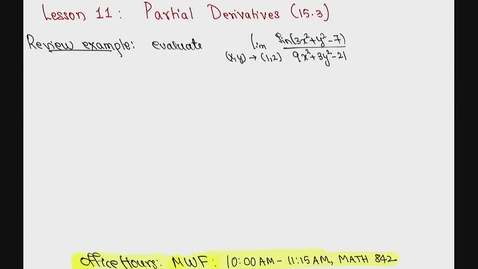 Lesson 11: Partial Derivatives (15.3)
Review example: evaluate lim (x,y)→(1,2) sin(3x²+y²-7) / 9x²+3y²-21
Office Hours: MWF: 10:00 AM - 11:15 AM, MATH 842